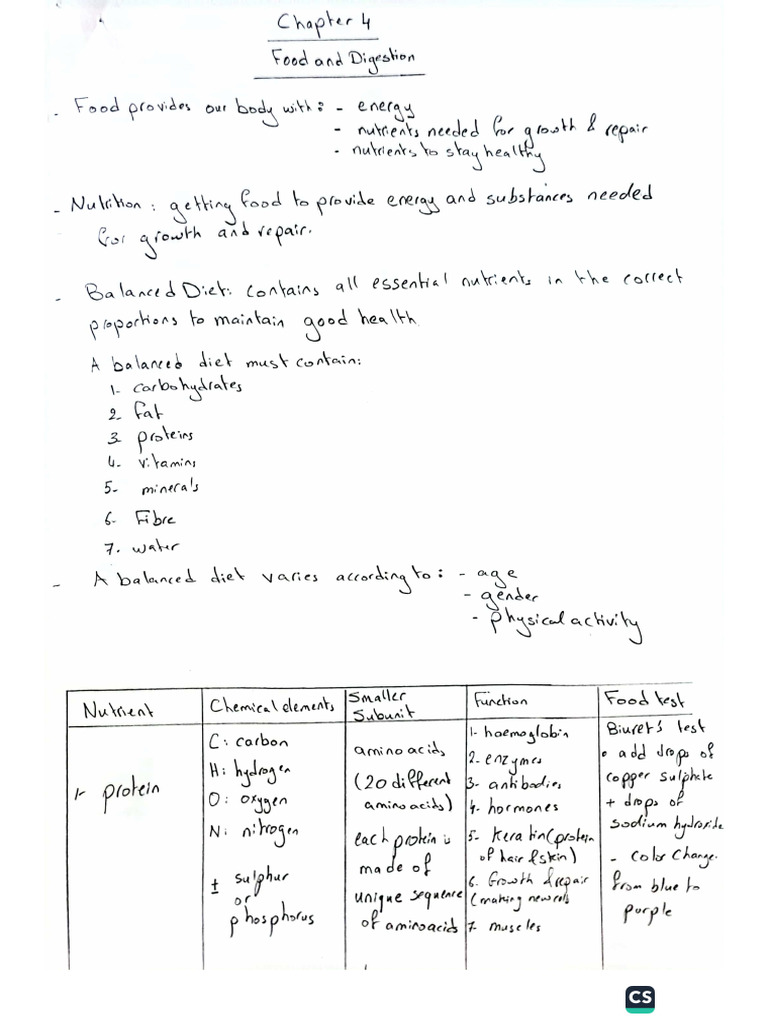 Chapter 4
Food and Digestion
- Food provides our body with: - energy
- nutrients needed for growth & repair
- nutrients to stay healthy
- Nutrition: getting food to provide energy and substances needed
for growth and repair.
- Balanced Diet: contains all essential nutrients in the correct
proportions to maintain good health.
A balanced diet must contain:
1- carbohydrates
2- fat
3- proteins
4- vitamins
5- minerals
6- Fibre
7. water
- A balanced diet varies according to: - age
- gender
- physical activity
Nutrient
Chemical elements
Smaller
Subunit
Function
Food test
1- protein
C: carbon
H: hydrogen
O: oxygen
N: nitrogen
± sulphur
or
phosphorus
amino acids
(20 different
amino acids)
each protein is
made of
unique sequence
of amino acids
1- haemoglobin
2- enzymes
3- antibodies
4- hormones
5- Keratin (protein
of hair & skin)
6. Growth & repair
(making new cell
7- muscles
Biuret's test
• add drops of
copper sulphate
+ drops of
sodium hydroxide
- color change.
from blue to
purple
CS